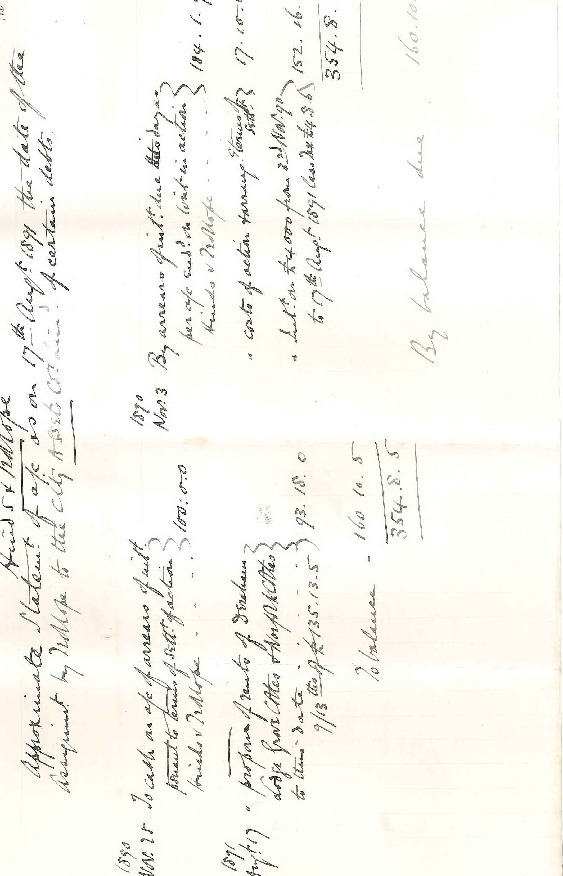 Hinds & Trollope
Approximate Statement of a/c as on 17th Augt. 1891 the date of the
Assignment by Trollope to the City & Cos Limd. of certain debts
1890
Nov. 25 To cash on a/c of arrears of intt.
pursuant to terms of settt. of action
Hinds v Trollope - - - 100. 0. 0
1891
Augt. 17 " proporn. of rents of Dereham
Lodge Grove Cottes & Norfolk Cottes
to this date - - - -
9/13ths of £135.13.5 93. 18. 0
To balance - 160 10. 5
354. 8. 5
1890
Nov. 3 By arrears of intt. due
per a/c end. on Writ in action
Hinds v Trollope - - - 184. 1.
" costs of action terms of
settt. 17. 10.
" Intt. on £4000 from 2nd Nov. 90
to 17th Augt. 1891 less tax 152. 16.
354. 8.
By balance due 160. 10